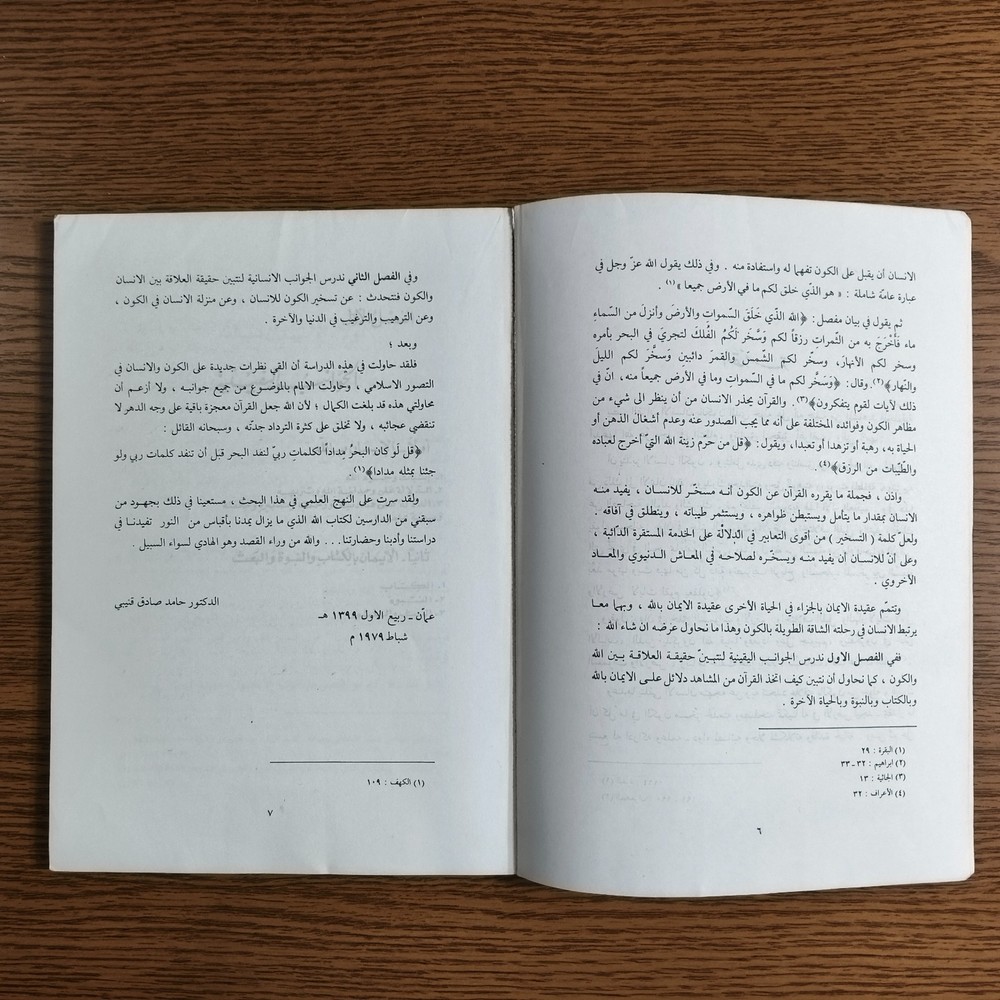 الانسان أن يقبل على الكون تفهما له واستفادة منه . وفي ذلك يقول الله عزّ وجل في
عبارة عامة شاملة : « هو الذّي خلق لكم ما في الأرض جميعا »(١) .
ثم يقول في بيان مفصل: ﴿الله الذّي خَلَقَ السّمواتِ والأرضَ وأنزلَ من السّماءِ
ماء فَأخْرَجَ به من الثّمراتِ رزقاً لكم وَسَّخر لَكُمُ الفُلكَ لتجريَ في البحر بأمره
وسخر لكم الأنهارَ، وسخّر لكمُ الشّمسَ والقمرَ دائبينِ وسخَّرَ لكم الليلَ
والنّهار﴾(٢).وقال: ﴿وَسَخَّر لكم ما في السّموات وما في الأرضِ جميعاً منه، انّ في
ذلك لآيات لقوم يتفكرون﴾(٣). والقرآن يحذر الانسان من أن ينظر الى شيء من
مظاهر الكون وفوائده المختلفة على أنه مما يجب الصدور عنه وعدم أشغال الذهن أو
الحياة به، رهبة أو تزهدا أو تعبدا، ويقول: ﴿قل من حرّم زينة الله التيّ أخرج لعباده
والطّيّبات من الرزق﴾(٤).
واذن ، فجملة ما يقرره القرآن عن الكون أنـه مسخّـر للانسـان ، يفيد منـه
الانسان بمقدار ما يتأمل ويستبطن ظواهره ، ويستثمر طيباته ، وينطلق في آفاقه .
ولعلّ كلمة ( التسخير ) من أقوى التعابير في الدّلالّة على الخدمة المستقرة الدّائبة ،
وعلى أنّ للانسان أن يفيد منـه ويسخّـره لصلاحـه في المعـاش الـدنيـوي والمعـاد
الأخروي .
وتتمّم عقيدة الايمان بالجزاء في الحياة الأخرى عقيدة الايمان بالله ، وبهما معـا
يرتبط الانسان في رحلته الشاقة الطويلة بالكون وهذا ما نحاول عرضه ان شاء الله :
ففي الفصـل الاول ندرس الجوانـب اليقينية لنتبـيّن حقيقـة العلاقـة بـين الله
والكون ، كما نحاول أن نتبين كيف اتخذ القرآن من المشاهد دلائل علـى الايمان بالله
وبالكتاب وبالنبوة وبالحياة الآخرة .
(١) البقرة : ٢٩
(٢) ابراهيم : ٣٢ ـ ٣٣
(٣) الجاثية : ١٣
(٤) الأعراف : ٣٢
٦
وفي الفصل الثاني ندرس الجوانب الانسانية لنتبين حقيقة العلاقة بين الانسان
والكون فنتحدث : عن تسخير الكون للانسان ، وعن منزلة الانسان في الكون ،
وعن الترهيب والترغيب في الدنيا والآخرة .
وبعد ؛
فلقد حاولت في هذه الدراسة أن القي نظرات جديدة على الكون والانسان في
التصور الاسلامي ، وحاولت الالمام بالموضـوع من جميع جوانبـه ، ولا أزعـم أن
محاولتي هذه قد بلغت الكمال ؛ لأن الله جعل القرآن معجزة باقية على وجه الدهر لا
تنقضي عجائبه ، ولا تخلق على كثرة الترداد جدتّه ، وسبحانه القائل :
﴿قل لَو كان البحرُ مِداداً لكلماتِ ربيّ لنفد البحر قبل أن تنفد كلمات ربي ولو
جئنا بمثله مدادا﴾(١).
ولقد سرت على النهج العلمي في هذا البحث ، مستعينا في ذلك بجهـود من
سبقني من الدارسين لكتاب الله الذي ما يزال يمدنا بأقباس من النور تفيدنـا في
دراستنا وأدبنا وحضارتنا . . . والله من وراء القصد وهو الهادي لسواء السبيل .
الدكتور حامد صادق قنيبي
عمّان ـ ربيع الاول ١٣٩٩ هـ
شباط ١٩٧٩ م
(١) الكهف : ١٠٩
٧